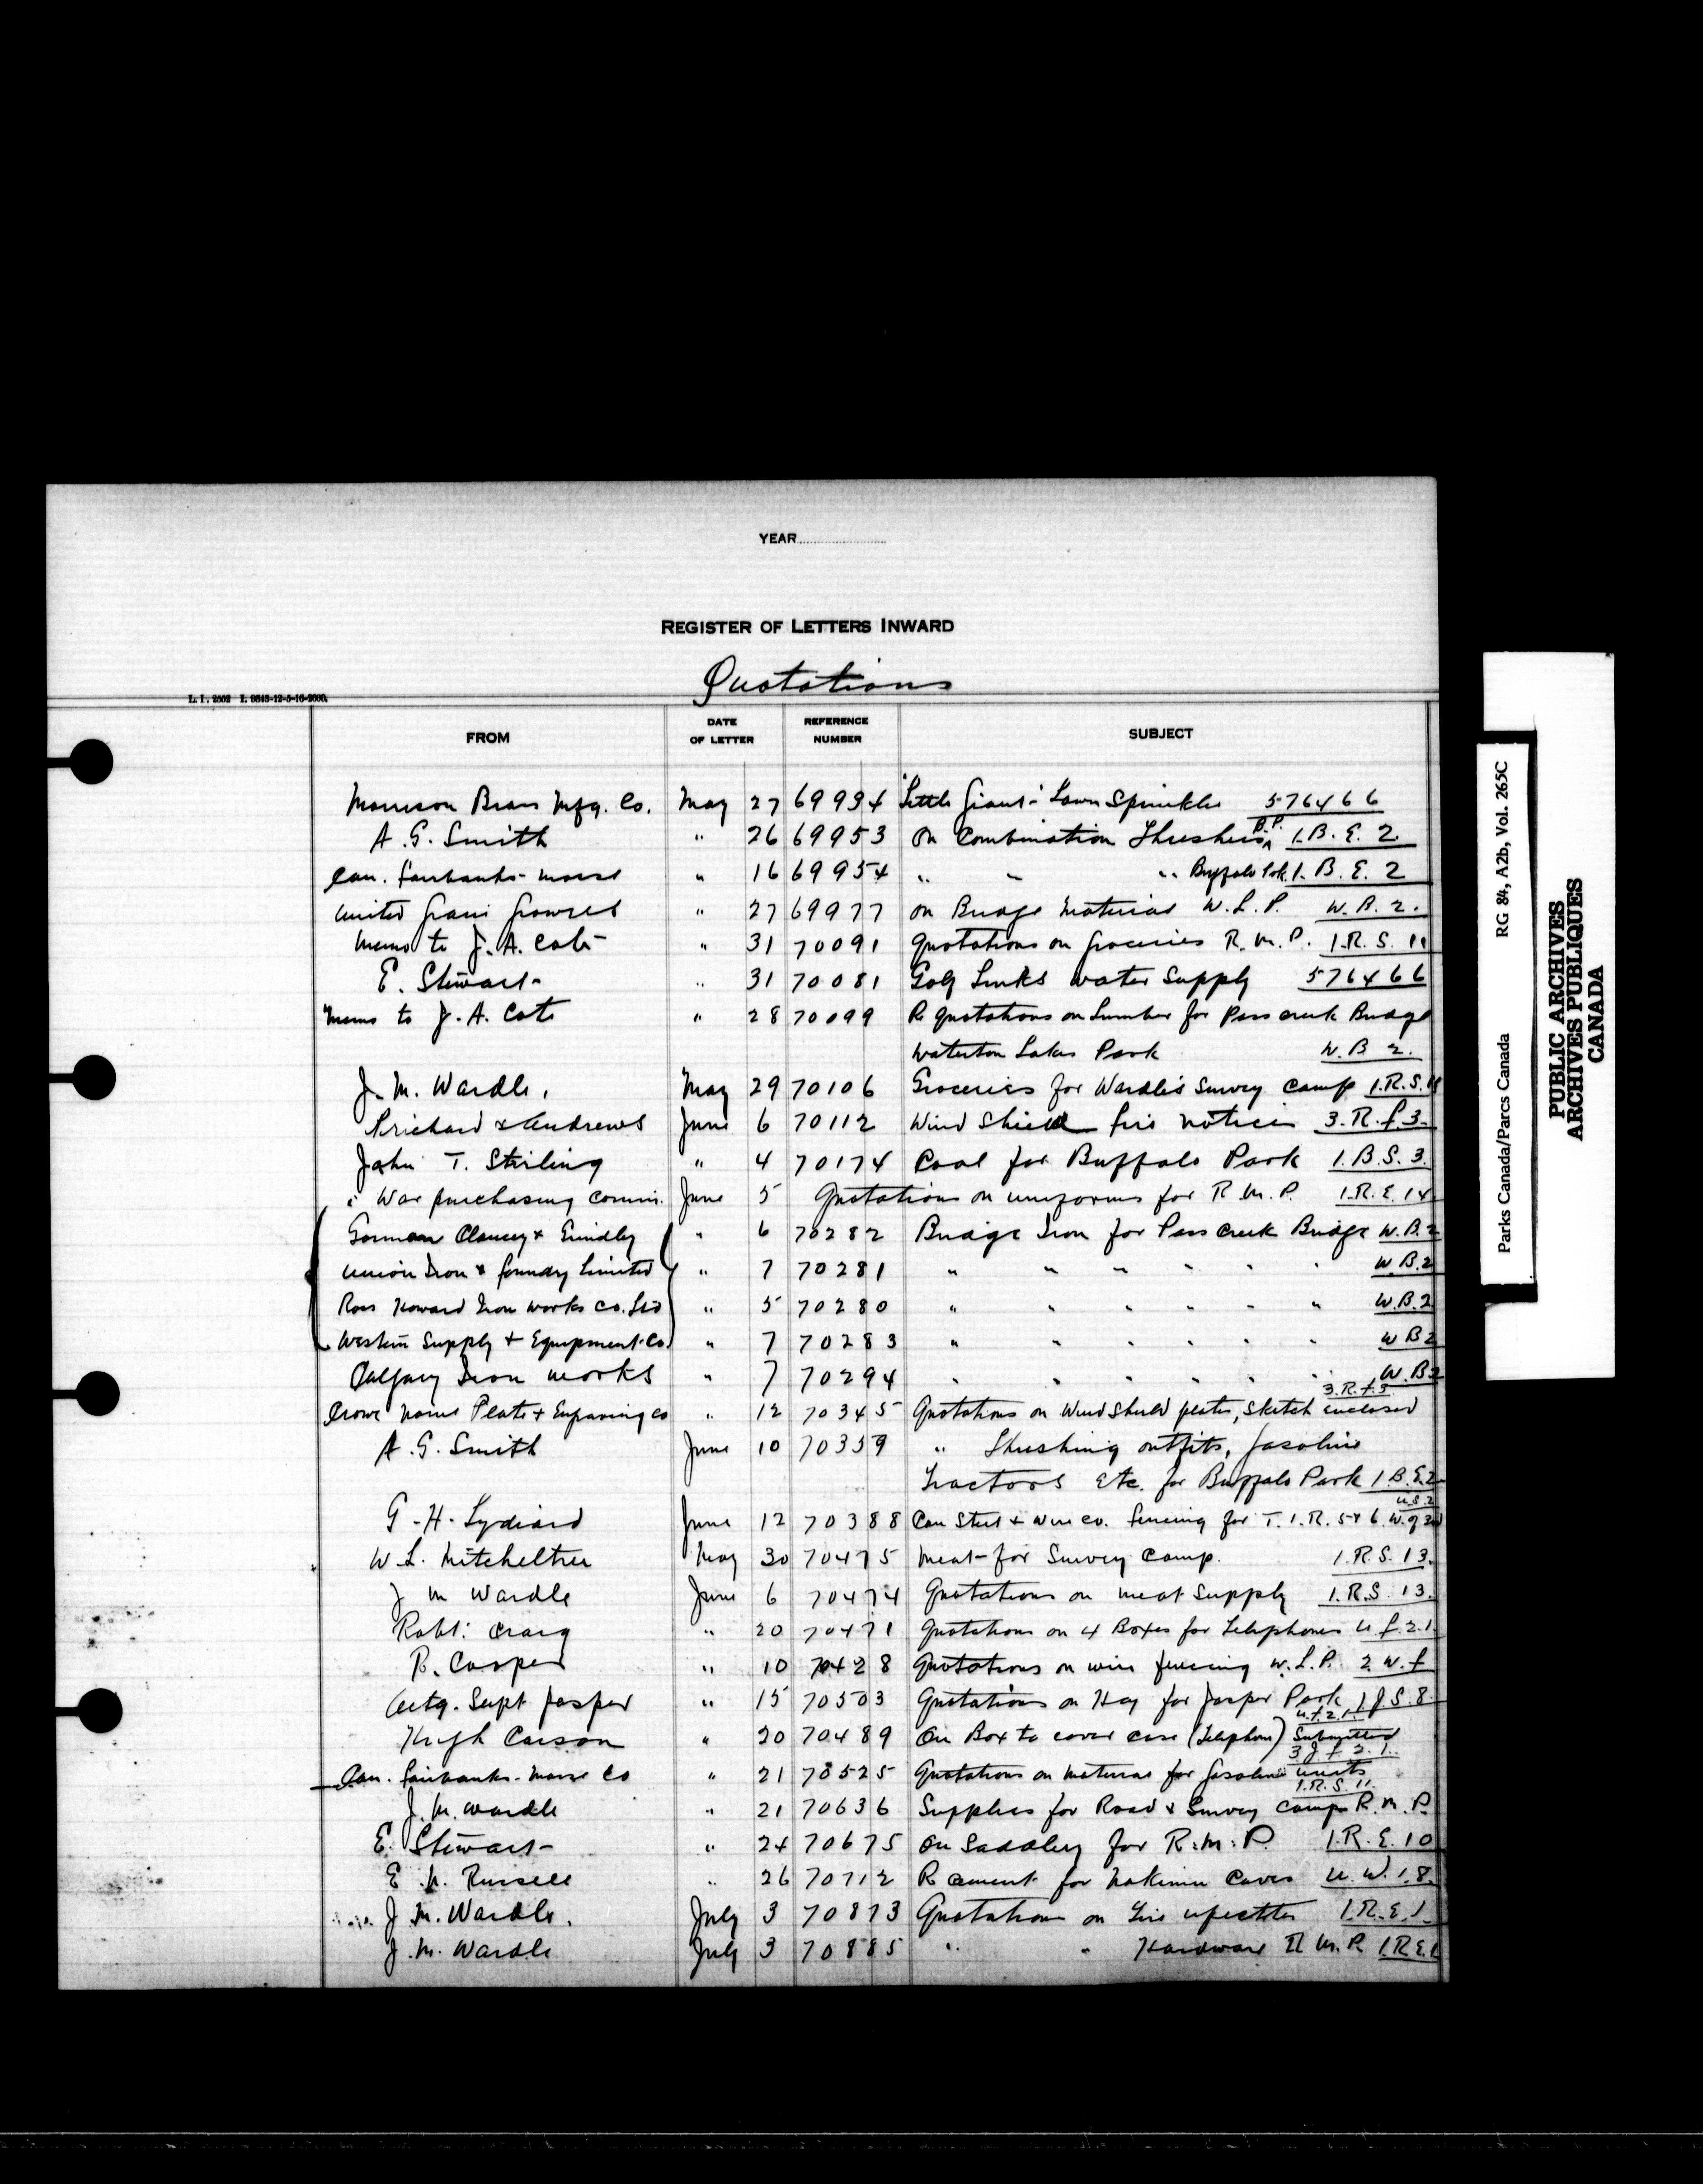 YEAR
REGISTER OF LETTERS INWARD
Quotations
L. I. 2502 I. 9843-12-5-16-2000.
FROM DATE OF LETTER REFERENCE NUMBER SUBJECT
Morrison Brass Mfg. Co. May 27 69994 "Little Giant" Lawn Sprinkler 576466
A. G. Smith " 26 69953 on Combination Threshers B.P. 1.B.E.2
Can. Fairbanks-Morse " 16 69954 " " " Buffalo Pk. 1.B.E.2
United Grain Growers " 27 69977 on Bridge Material W.L.P. W.B.2.
Memo to J. A. Cote " 31 70091 Quotations on Groceries R.M.P. 1.R.S. 11
E. Stewart " 31 70081 Golf Links water Supply 576466
Memo to J. A. Cote " 28 70099 Re quotations on Lumber for Pass creek Bridge
Waterton Lakes Park W.B 2.
J. M. Wardle. May 29 70106 Groceries for Wardle's Survey Camp 1.R.S.11
Prichard & Andrews June 6 70112 Wind Shield fire notices 3.R.f.3.
John T. Stirling " 4 70174 Coal for Buffalo Park 1.B.S.3.
War purchasing comm. June 5 Quotations on uniforms for R.M.P. 1.R.E.14
Gorman Clancey & Grindley " 6 70282 Bridge Iron for Pass Creek Bridge W.B.2
Union Iron & foundry Limited " 7 70281 " " " " " " W.B.2
Ross Howard Iron Works Co. Ltd " 5 70280 " " " " " " W.B.2
Western Supply + Equipment Co. " 7 70283 " " " " " " W B2
Calgary Iron Works " 7 70294 " " " " " " W.B2
3.R.f.3
Crowe Name Plate + Engraving Co " 12 70345 Quotations on Wind Shield plates, Sketch enclosed
A. G. Smith June 10 70359 " Threshing outfits, gasoline
Tractors etc. for Buffalo Park 1.B.E.2
G. H. Lydiard June 12 70388 Can Steel & Wire Co. fencing for T. 1. R. 5 & 6. W. of
W. L. Mitcheltree May 30 70475 Meat for Survey Camp. 1.R.S.13.
J M Wardle June 6 70474 Quotations on meat Supply 1.R.S. 13.
Robt: Craig " 20 70471 Quotations on 4 Boxes for Telephones U.f.2.1.
R. Cooper " 10 70428 Quotations on wire fencing W.L.P. 2.W.f
Actg. Supt Jasper " 15 70503 Quotations on Hay for Jasper Park 1.J.S.8.
U.f.2.1.
Hugh Carson " 20 70489 On Box to cover case (Telephone) Submitted
3 J. f. 2. 1.
Can. Fairbanks-Morse Co " 21 70525 Quotations on material for gasoline units
1.R.S.11.
J. M. Wardle " 21 70636 Supplies for Road & Survey Camps R.M.P.
E. Stewart " 24 70675 On Saddlery for R.M.P. 1.R.E.10
E. N. Russell " 26 70712 Re cement for Nakimu Caves U.W.1.8.
J. M. Wardle. July 3 70873 Quotations on 1.R.E.1.
J. M. Wardle July 3 70885 " " Hardware R.M.P. 1.R.E.1
Parks Canada/Parcs Canada RG 84, A2b, Vol. 265C
PUBLIC ARCHIVES
ARCHIVES PUBLIQUES
CANADA